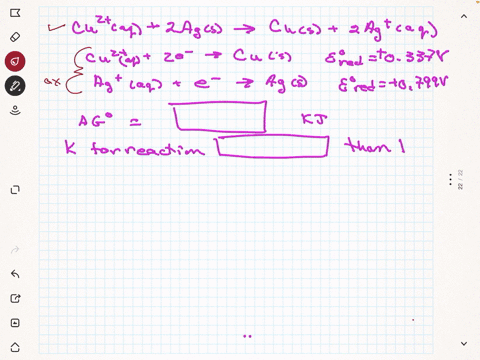 ✓ Cu²⁺(aq) + 2Ag(s) → Cu(s) + 2Ag⁺(aq)
Cu²⁺(ap) + 2e⁻ → Cu(s) ε°red = +0.337V
ox Ag⁺(aq) + e⁻ → Ag(s) ε°red = +0.799V
ΔG° = KJ
K for reaction than 1
22 / 22